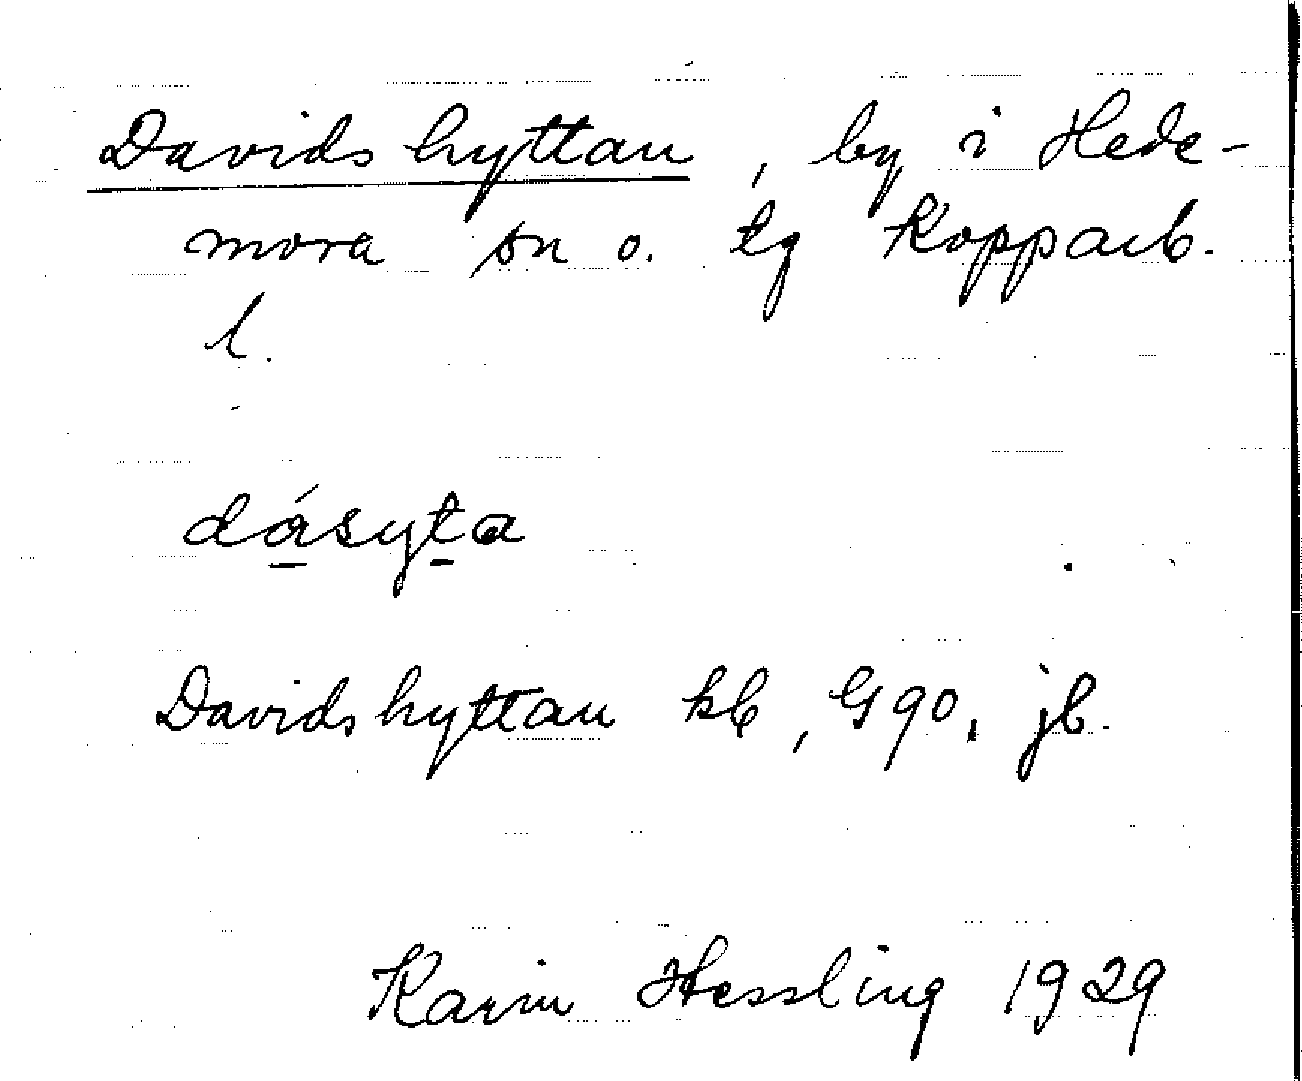 Davidshyttan, by i Hede-
mora sn o. tg Kopparb.
l.
dásyta
Davidshyttan kb, G 90, jb.
Karin Hessling 1929